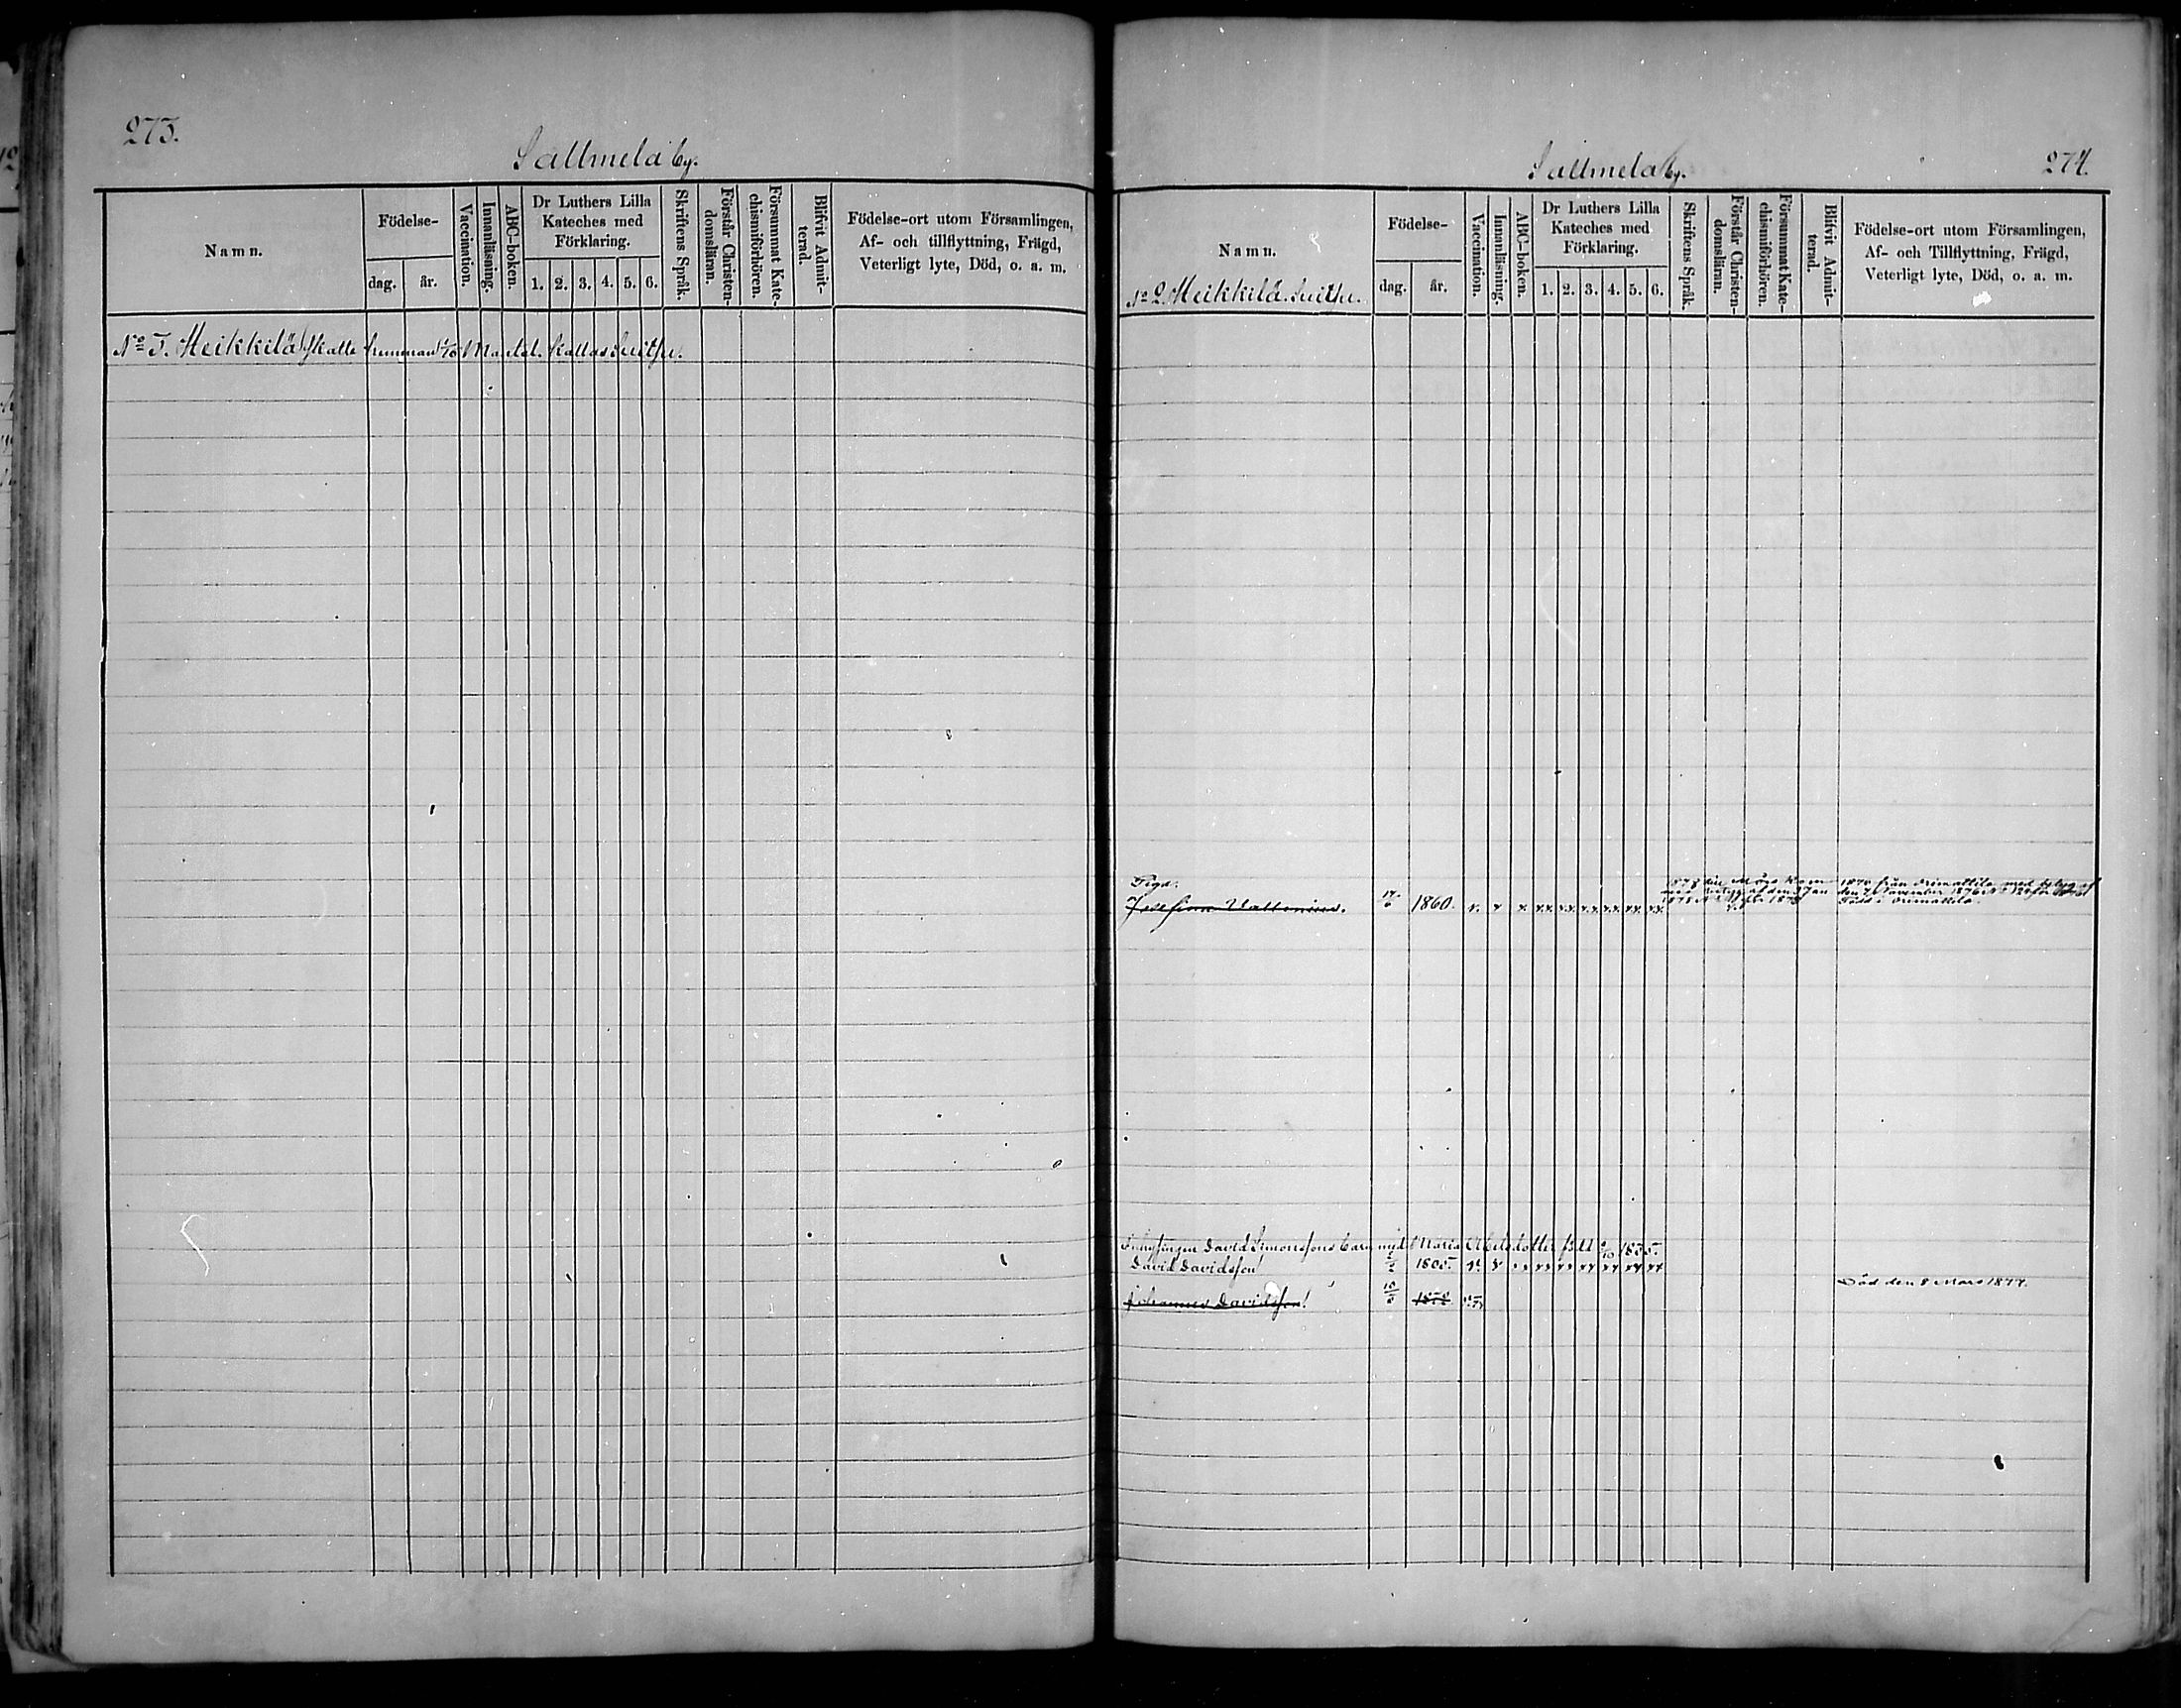 273.
Saltmela by.
Namn.
Födelse-
dag.
år.
Vaccination.
Innanläsning.
ABC-boken.
Dr Luthers Lilla
Kateches med
Förklaring.
1. 2. 3. 4. 5. 6.
Skriftens Språk.
Förstår Christen-
domsläran.
Försummat Kate-
chismiförhören.
Blifvit Admit-
terad.
Födelse-ort utom Församlingen,
Af- och tillflyttning, Frägd,
Veterligt lyte, Död, o. a. m.
No 1. Heikkilä Skatte Mantal. kallas
Saltmela by.
274.
Namn.
No 2. Heikkilä
Födelse-
dag.
år.
Vaccination.
Innanläsning.
ABC-boken.
Dr Luthers Lilla
Kateches med
Förklaring.
1. 2. 3. 4. 5. 6.
Skriftens Språk.
Förstår Christen-
domsläran.
Försummat Kate-
chismiförhören.
Blifvit Admit-
terad.
Födelse-ort utom Församlingen,
Af- och Tillflyttning, Frägd,
Veterligt lyte, Död, o. a. m.
Pigd.
Josefina 1860.
från Orimattila med
den November 1876
Född i Orimattila.
Inhysingen David Simonssons barn med Maria Abelsdotter född
David Davidsson
Död den 8 Mars 1877.
Johannes Davidsson